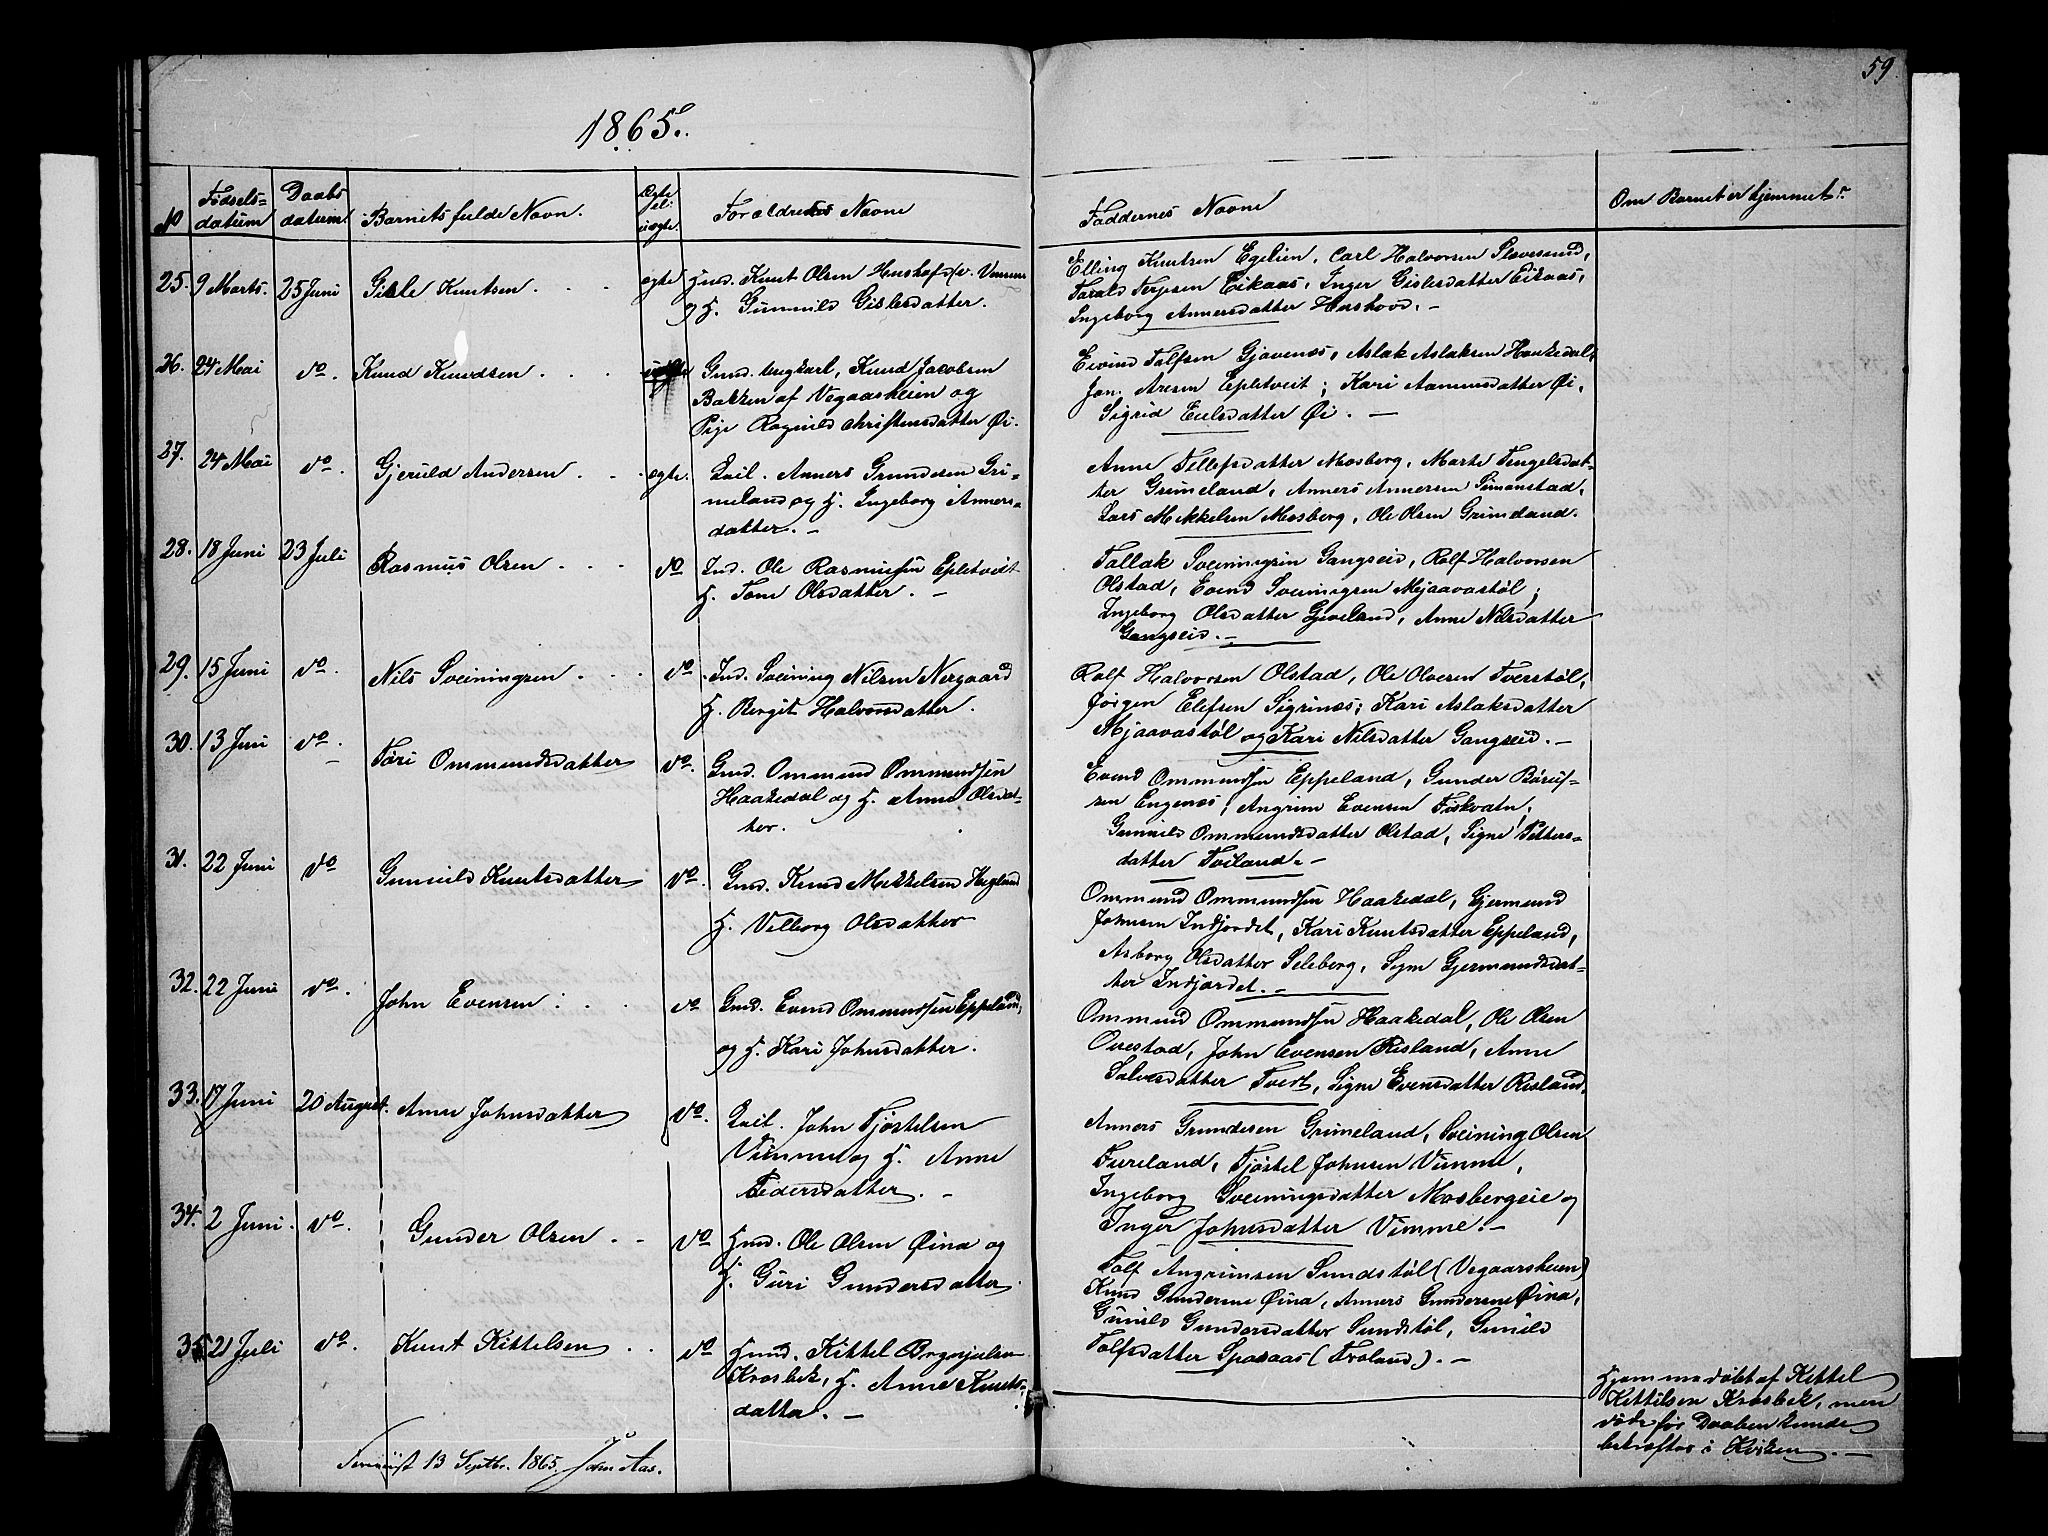 59.
1865.
No
Fødsels-
datum
Daabs
datum
Barnets fulde Navn.
Ægte
el.
uægte.
Forældrenes Navne
Faddernes Navne
Om Barnet er hjemmet:
25. 9 Marts. 25 Juni Gisle Knutsen ægte Hmd. Knut Olsen v. Vimme
og H. Gunnild Gislesdatter.
Elling Knutsen Egelien, Carl Halvorsen
Tarald Terjesen Eikaas, Inger Gislesdatter Eikaas,
Ingeborg Annersdatter
26. 24 Mai do. Knud Knudsen uægte Gmd. ungkarl, Knud Jacobsen
Bakken af Vegaarsheien og
Pige Ragnild Christensdatter Øi.
Eivind Tolfsen Gjavenæs, Aslak Aslaksen Haakedal,
Jon Aresen Epletveit; Kari Aamunsdatter Øi,
Sigrid Øi. —
27. 24 Mai do. Gjeruld Andersen ægte. Leil. Anners Grundesen Gri-
meland og H. Ingeborg Anners-
datter. —
Anne Tellefsdatter Mosberg, Marte Tengelsdat-
ter Grimeland, Anners Annersen Simonstad,
Lars Mikkelsen Mosberg, Ole Olsen Grimeland.
28. 18 Juni 23 Juli Rasmus Olsen do Ind. Ole Rasmussen Epletveit
H. Tone Olsdatter. —
Tallak Sveiningsen Gangseid, Rolf Halvorsen
Olstad, Evend Sveiningsen Mjaavastøl;
Ingeborg Olsdatter Gjeveland, Anne Nilsdatter
Gangseid. —
29. 15 Juni do. Nils Sveiningsen do. Ind. Sveining Nilsen Nergaard
H. Bergit Halvorsdatter.
Rolf Halvorsen Olstad, Ole Olversen Tverstøl,
Jørgen Elefsen Sigrinæs; Kari Aslaksdatter
Mjaavastøl og Kari Nilsdatter Gangseid. —
30. 13 Juni do. Tøri Ommundsdatter do. Gmd. Ommund Ommundsen
Haakedal og H. Anne Olsdat-
ter.
Evend Ommundsen Eppeland, Gunder
Engenæs; Angrim Evensen Fiskvatn,
Gunnild Ommundsdatter Olstad, Signe Petters-
datter Tveiland. —
31. 22 Juni do Gunnild Knutsdatter do. Gmd. Knud Mikkelsen Hegland
H. Vilborg Olsdatter
Ommund Ommundsen Haakedal, Gjermund
Johnsen Indjordet, Kari Knutsdatter Eppeland,
Asborg Olsdatter Seleberg, Signe Gjermundsdat-
ter Indjordet. —
32. 22 Juni do. John Evensen do Gmd. Evend Ommundsen Eppeland,
og H. Kari Johnsdatter.
Ommund Ommundsen Haakedal, Ole Olsen
Ovestad, John Evensen Risland, Anne
Salvesdatter Tveit, Signe Evensdatter Risland.
33. 17 Juni 20 August. Anne Johnsdatter do. Leil. John Tjøstelsen
Vimme og H. Anne
Pedersdatter. —
Anners Grundesen Grimeland, Sveining Olsen
Fureland, Tjøstel Johnsen Vimme,
Ingeborg Sveiningsdatter Mosbergeie og
Inger Johnsdatter Vimme. —
34. 2 Juni. do. Gunder Olsen do Hmd. Ole Olsen Øina og
H. Guri Gundersdatter.
Tolf Angrimsen Sundstøl (Vegaarsheien)
Knud Gundersen Øina, Anners Gundersen Øina,
Gunild Gundersdatter Sundstøl, Gunild
Tolfsdatter Sposaas (Froland). —
35 21 Juli do. Knut Kittelsen do Hmd. Kittel Brynjulsen
Krosbek, H. Anne Knuts-
datter. —
Hjemmedøbt af Kittel
Kittilsen Krosbek, men
døde før Daaben kunde
bekræftes i Kirken. —
13 Septbr. 1865. John Aas.